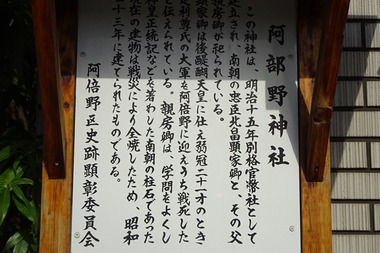 阿部野神社
この神社は、明治十五年別格官幣社として
建立され、南朝の忠臣北畠顕家卿と、その父
親房卿が祀られている。
顕家卿は後醍醐天皇に仕え弱冠二十一才のとき
足利尊氏の大軍を阿倍野に迎えうち戦死した
と伝えられている。親房卿は、学問をよくし
皇正統記などを著わした南朝の柱石であった
在の建物は戦災により全焼したため、昭和
十三年に建てられたものである。
阿倍野区史跡顕彰委員会